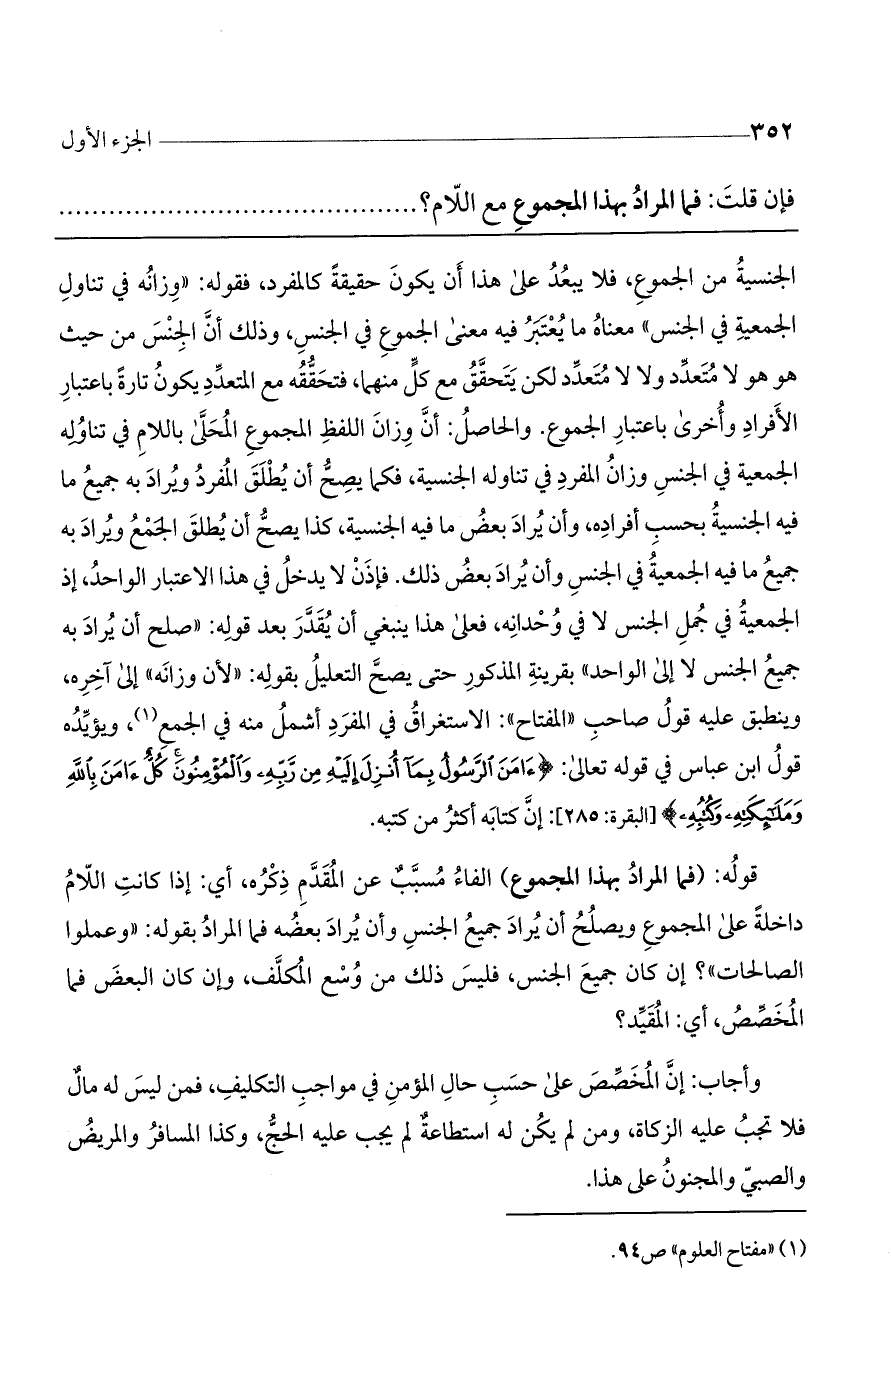 ٣٥٢ الجزء الأول
فإن قلتَ: فما المرادُ بهذا المجموعِ مع اللّام؟ ............................................
الجنسيةُ من الجموعِ، فلا يبعُدُ علىٰ هذا أَن يكونَ حقيقةً كالمفرد، فقوله: «وِزانُه في تناولِ
الجمعيةِ في الجنس» معناهُ ما يُعْتَبَرُ فيه معنىٰ الجموعِ في الجنسِ، وذلك أنَّ الجِنْسَ من حيث
هو هو لا مُتَعدِّد ولا لا مُتَعدِّد لكن يَتَحقَّقُ مع كلٍّ منهما، فتحَقُّقُه مع المتعدِّدِ يكونُ تارةً باعتبارِ
الأفرادِ وأُخرىٰ باعتبارِ الجموع. والحاصلُ: أنَّ وِزانَ اللفظِ المجموعِ المُحَلَّىٰ باللامِ في تناوُلِه
الجمعية في الجنسِ وزانُ المفردِ في تناوله الجنسية، فكما يصِحُّ أن يُطْلَقَ المُفردُ ويُرادَ به جميعُ ما
فيه الجنسيةُ بحسبِ أفرادِه، وأن يُرادَ بعضُ ما فيه الجنسية، كذا يصحُّ أن يُطلقَ الجَمْعُ ويُرادَ به
جميعُ ما فيه الجمعيةُ في الجنسِ وأن يُرادَ بعضُ ذلك. فإذَنْ لا يدخلُ في هذا الاعتبار الواحدُ، إذ
الجمعيةُ في جُملِ الجنس لا في وُحْدانِه، فعلىٰ هذا ينبغي أن يُقَدَّرَ بعد قولِه: «صلح أن يُرادَ به
جميعُ الجنس لا إلىٰ الواحد» بقرينةِ المذكورِ حتى يصحَّ التعليلُ بقولِه: «لأن وزانَه» إلىٰ آخِرِه،
وينطبق عليه قولُ صاحبِ «المفتاح»: الاستغراقُ في المفرَدِ أشملُ منه في الجمعِ(١)، ويؤيِّدُه
قولُ ابن عباس في قوله تعالىٰ: ﴿ءَامَنَ ٱلرَّسُولُ بِمَآ أُنزِلَ إِلَيْهِ مِن رَّبِّهِۦ وَٱلْمُؤْمِنُونَ ۚ كُلٌّ ءَامَنَ بِٱللَّهِ
وَمَلَـٰٓئِكَتِهِۦ وَكُتُبِهِۦ﴾ [البقرة: ٢٨٥]: إنَّ كتابَه أكثرُ من كتبه.
قولُه: (فما المرادُ بهذا المجموع) الفاءُ مُسبَّبٌ عن المُقَدَّمِ ذِكْرُه، أي: إذا كانتِ اللّامُ
داخلةً علىٰ المجموعِ ويصلُحُ أن يُرادَ جميعُ الجنسِ وأن يُرادَ بعضُه فما المرادُ بقوله: «وعملوا
الصالحات»؟ إن كان جميعَ الجنس، فليسَ ذلك من وُسْع المُكلَّف، وإن كان البعضَ فما
المُخَصِّصُ، أي: المُقَيِّد؟
وأجاب: إنَّ المُخَصِّصَ علىٰ حسَبِ حالِ المؤمنِ في مواجبِ التكليفِ، فمن ليسَ له مالٌ
فلا تجبُ عليه الزكاة، ومن لم يكُن له استطاعةٌ لم يجب عليه الحجُّ، وكذا المسافرُ والمريضُ
والصبيّ والمجنونُ علىٰ هذا.
(١) «مفتاح العلوم» ص٩٤.